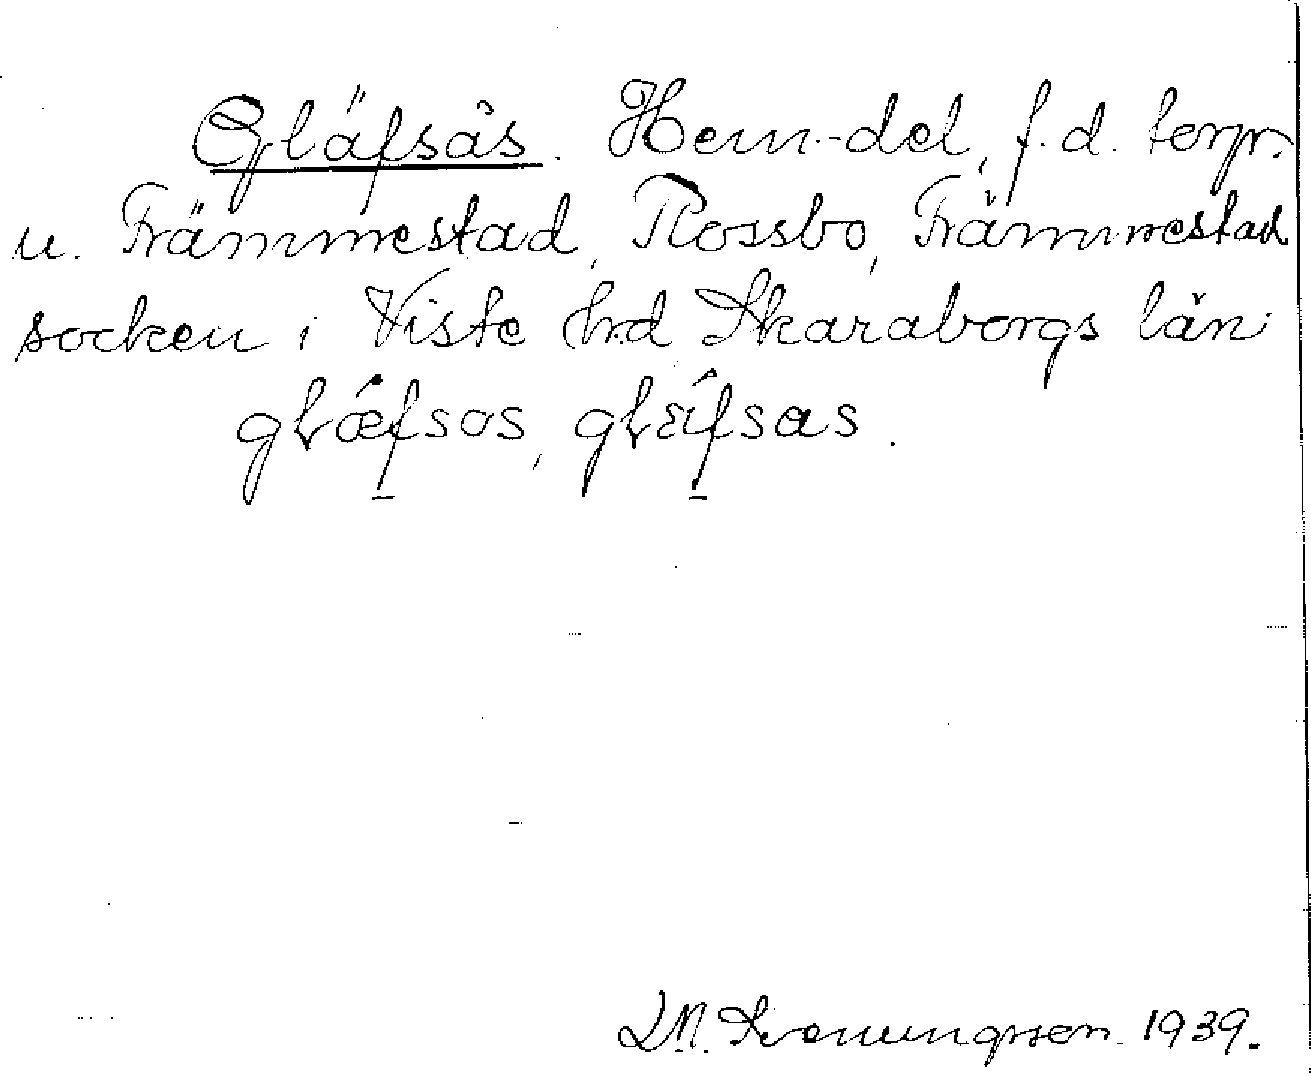 Gläfsås. Hem.-del, f.d. torp.
u. Främmestad, Rossbo, Främmestad
socken i Viste hrd Skaraborgs län
glǽfsas, glǽfsas.
1939.